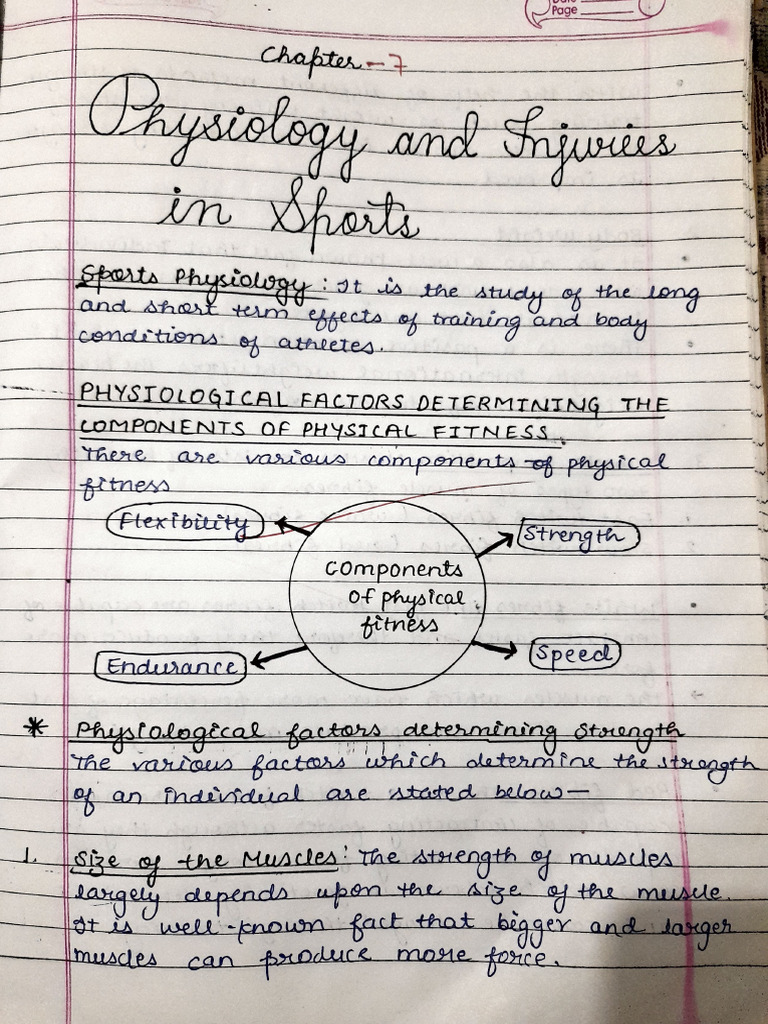 Date
Page
Chapter-7
Physiology and Injuries
in Sports
Sports Physiology : It is the study of the long
and short term effects of training and body
conditions of athletes.
PHYSIOLOGICAL FACTORS DETERMINING THE
COMPONENTS OF PHYSICAL FITNESS.
There are various components of physical
fitness
Flexibility
Strength
components
of physical
fitness
Endurance
Speed
* Physiological factors determining Strength
The various factors which determine the strength
of an individual are stated below—
1. Size of the Muscles : The strength of muscles
largely depends upon the size of the muscle.
It is well-known fact that bigger and larger
muscles can produce more force.